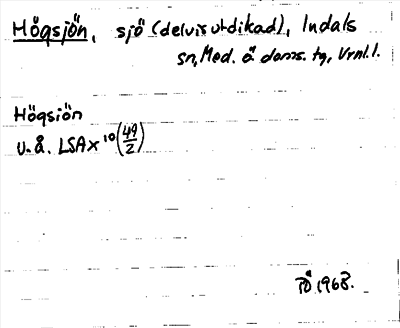 Högsjön, sjö (delvis utdikad), Indals
sn, Med. ö doms. tg, Vrnl. l.
Högsiön
u. å. LSA x 10 (49/2)
1968.